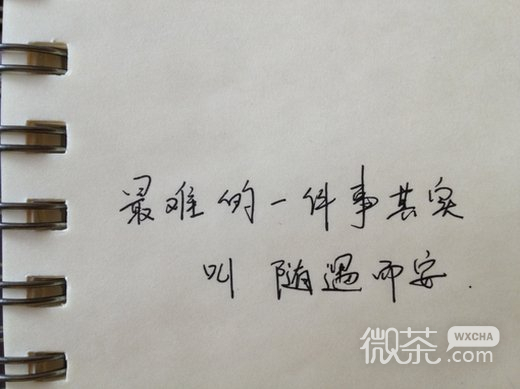 最难的一件事其实
叫 随遇而安.
微茶 WXCHA
.com